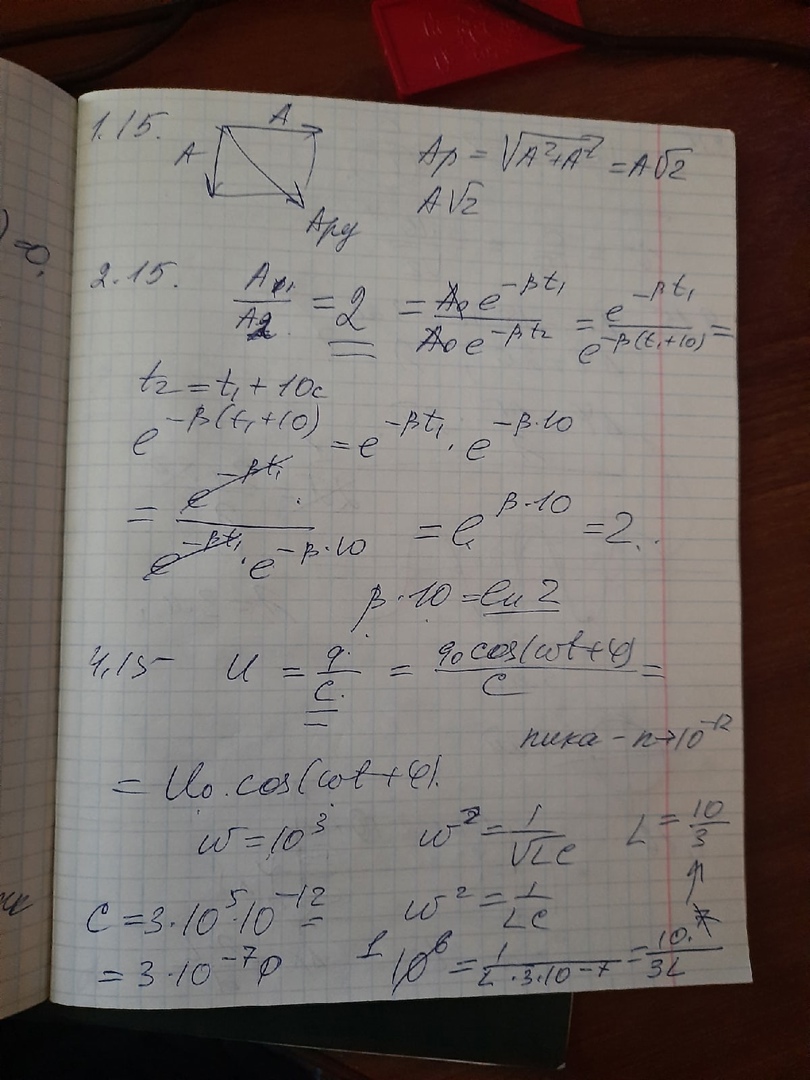 1.15. A
A
Aр = √A²+A² = A√2
A√2
Aру
)=0,
2.15. A₁/A₂ = 2 = A₀e^-βt₁ / A₀e^-βt₂ = e^-βt₁ / e^-β(t₁+10) =
t₂ = t₁ + 10с
e^-β(t₁+10) = e^-βt₁ · e^-β·10
= e^-βt₁ / e^-βt₁ · e^-β·10 = e^β·10 = 2
β·10 = ln 2
4.15 U = q/C = q₀cos(ωt+φ)/C =
пика - п→10^-12
= U₀·cos(ωt+φ)
ω = 10³ ω² = 1/√LC L = 10/3
C = 3·10⁵·10^-12 = ω² = 1/LC
= 3·10^-7 Ф 10⁶ = 1/L·3·10^-7 = 10·7/3L